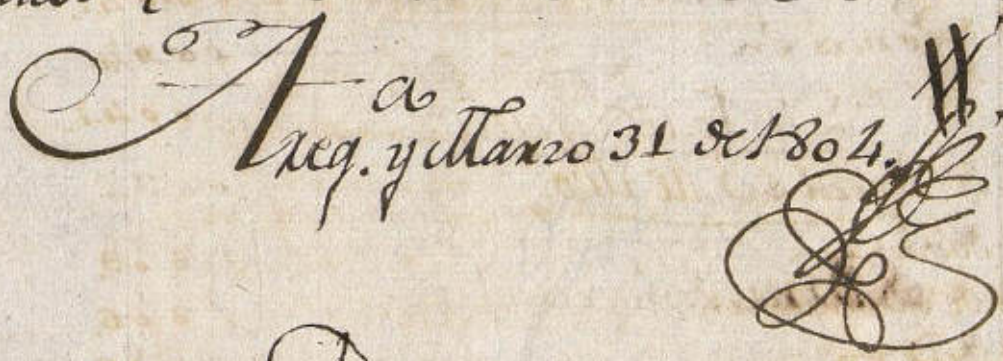 Areq.ᵃ y Marzo 31 de 1804.